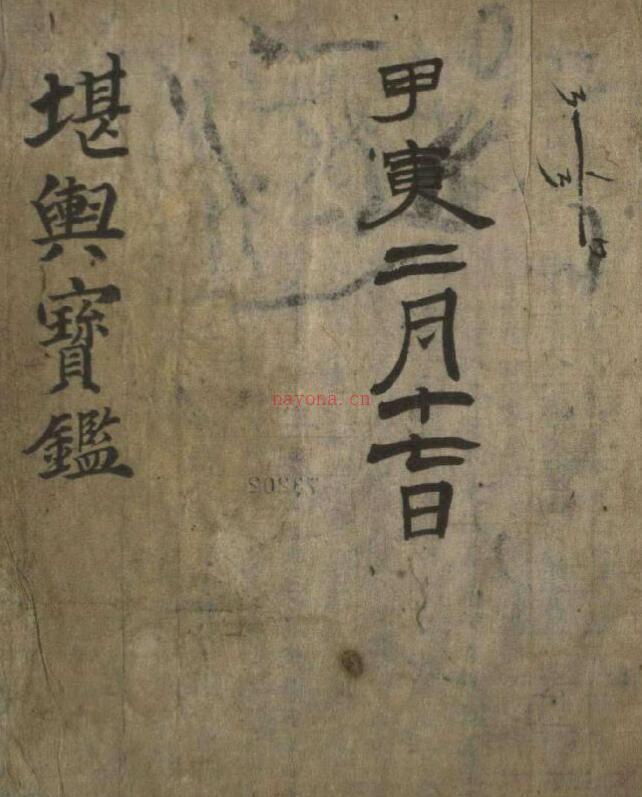 甲寅二月十七日
堪輿寶鑑
nayona.cn